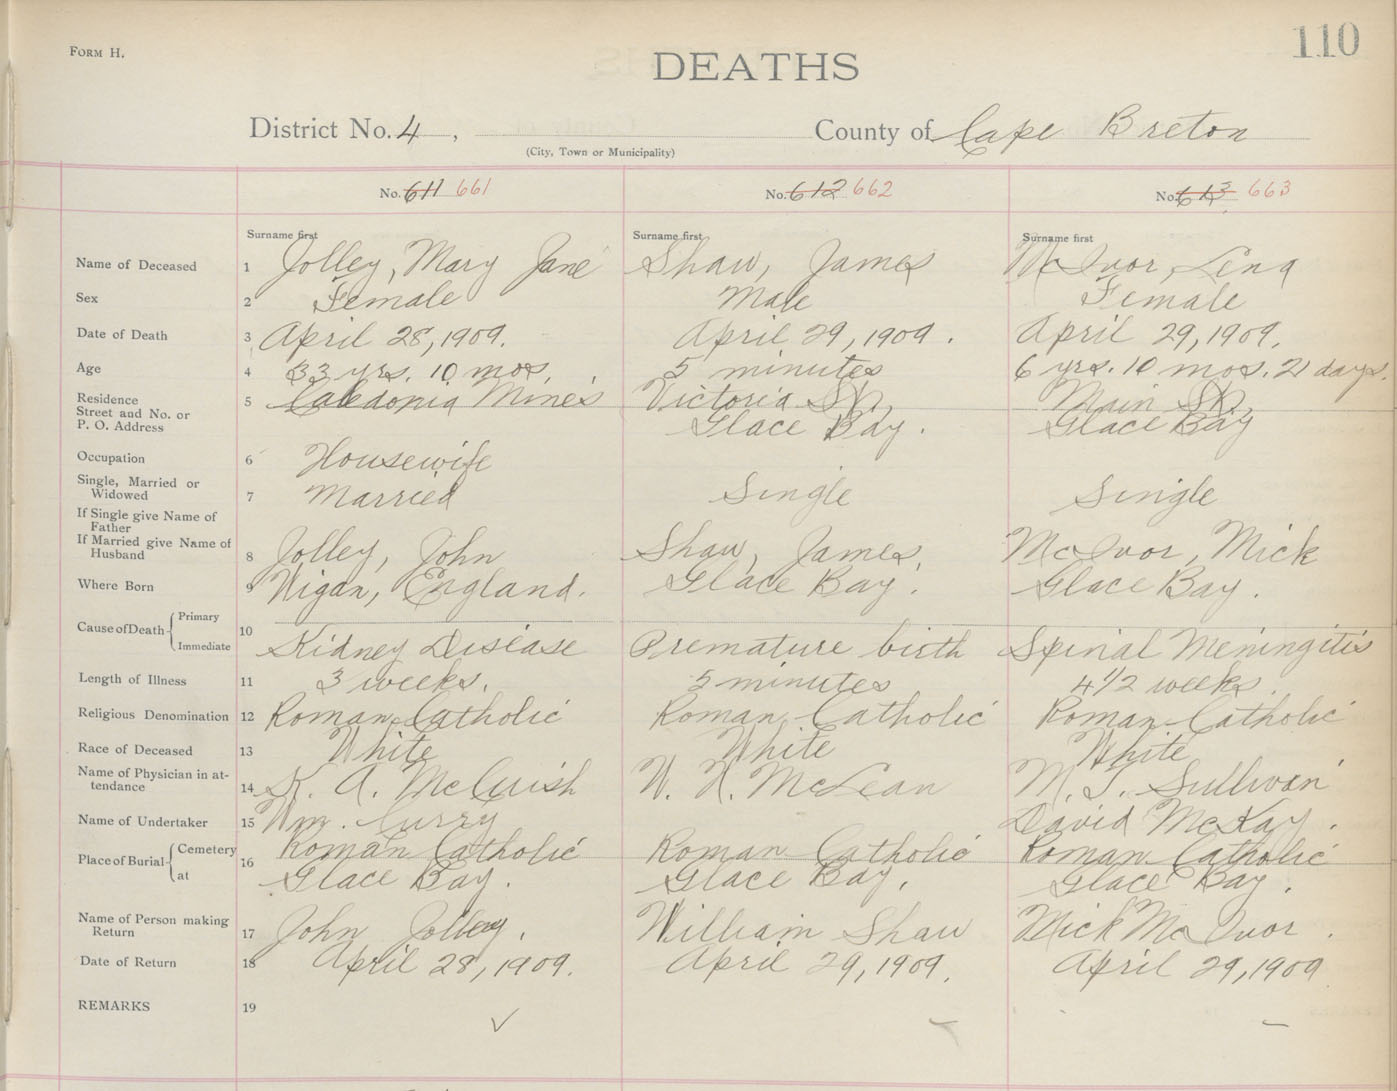 110
FORM H.
DEATHS
District No. 4, County of Cape Breton
(City, Town or Municipality)
No. 611 661 No. 612 662 No. 613 663
Surname first Surname first Surname first
Name of Deceased 1 Jolley, Mary Jane Shaw, James McIvor, Lena
Sex 2 Female Male Female
Date of Death 3 April 28, 1909. April 29, 1909. April 29, 1909.
Age 4 33 yrs. 10 mos. 5 minutes 6 yrs. 10 mos. 21 days.
Residence 5 Caledonia Mines Victoria St., Main St.,
Street and No. or
P. O. Address Glace Bay. Glace Bay
Occupation 6 Housewife
Single, Married or
Widowed 7 Married Single Single
If Single give Name of
Father
If Married give Name of
Husband 8 Jolley, John Shaw, James, McIvor, Mick
Where Born 9 Wigan, England. Glace Bay. Glace Bay.
Cause of Death Primary
Immediate 10 Kidney Disease Premature birth Spinial Meningitis
Length of Illness 11 3 weeks. 5 minutes 4 1/2 weeks.
Religious Denomination 12 Roman Catholic Roman Catholic Roman Catholic
Race of Deceased 13 White White White
Name of Physician in at-
tendance 14 K. A. McCuish W. H. McLean M. T. Sullivan
Name of Undertaker 15 Wm. Curry David McKay.
Place of Burial Cemetery 16 Roman Catholic Roman Catholic Roman Catholic
at Glace Bay. Glace Bay, Glace Bay.
Name of Person making
Return 17 John Jolley. William Shaw Mick McIvor.
Date of Return 18 April 28, 1909. April 29, 1909. April 29, 1909
REMARKS 19